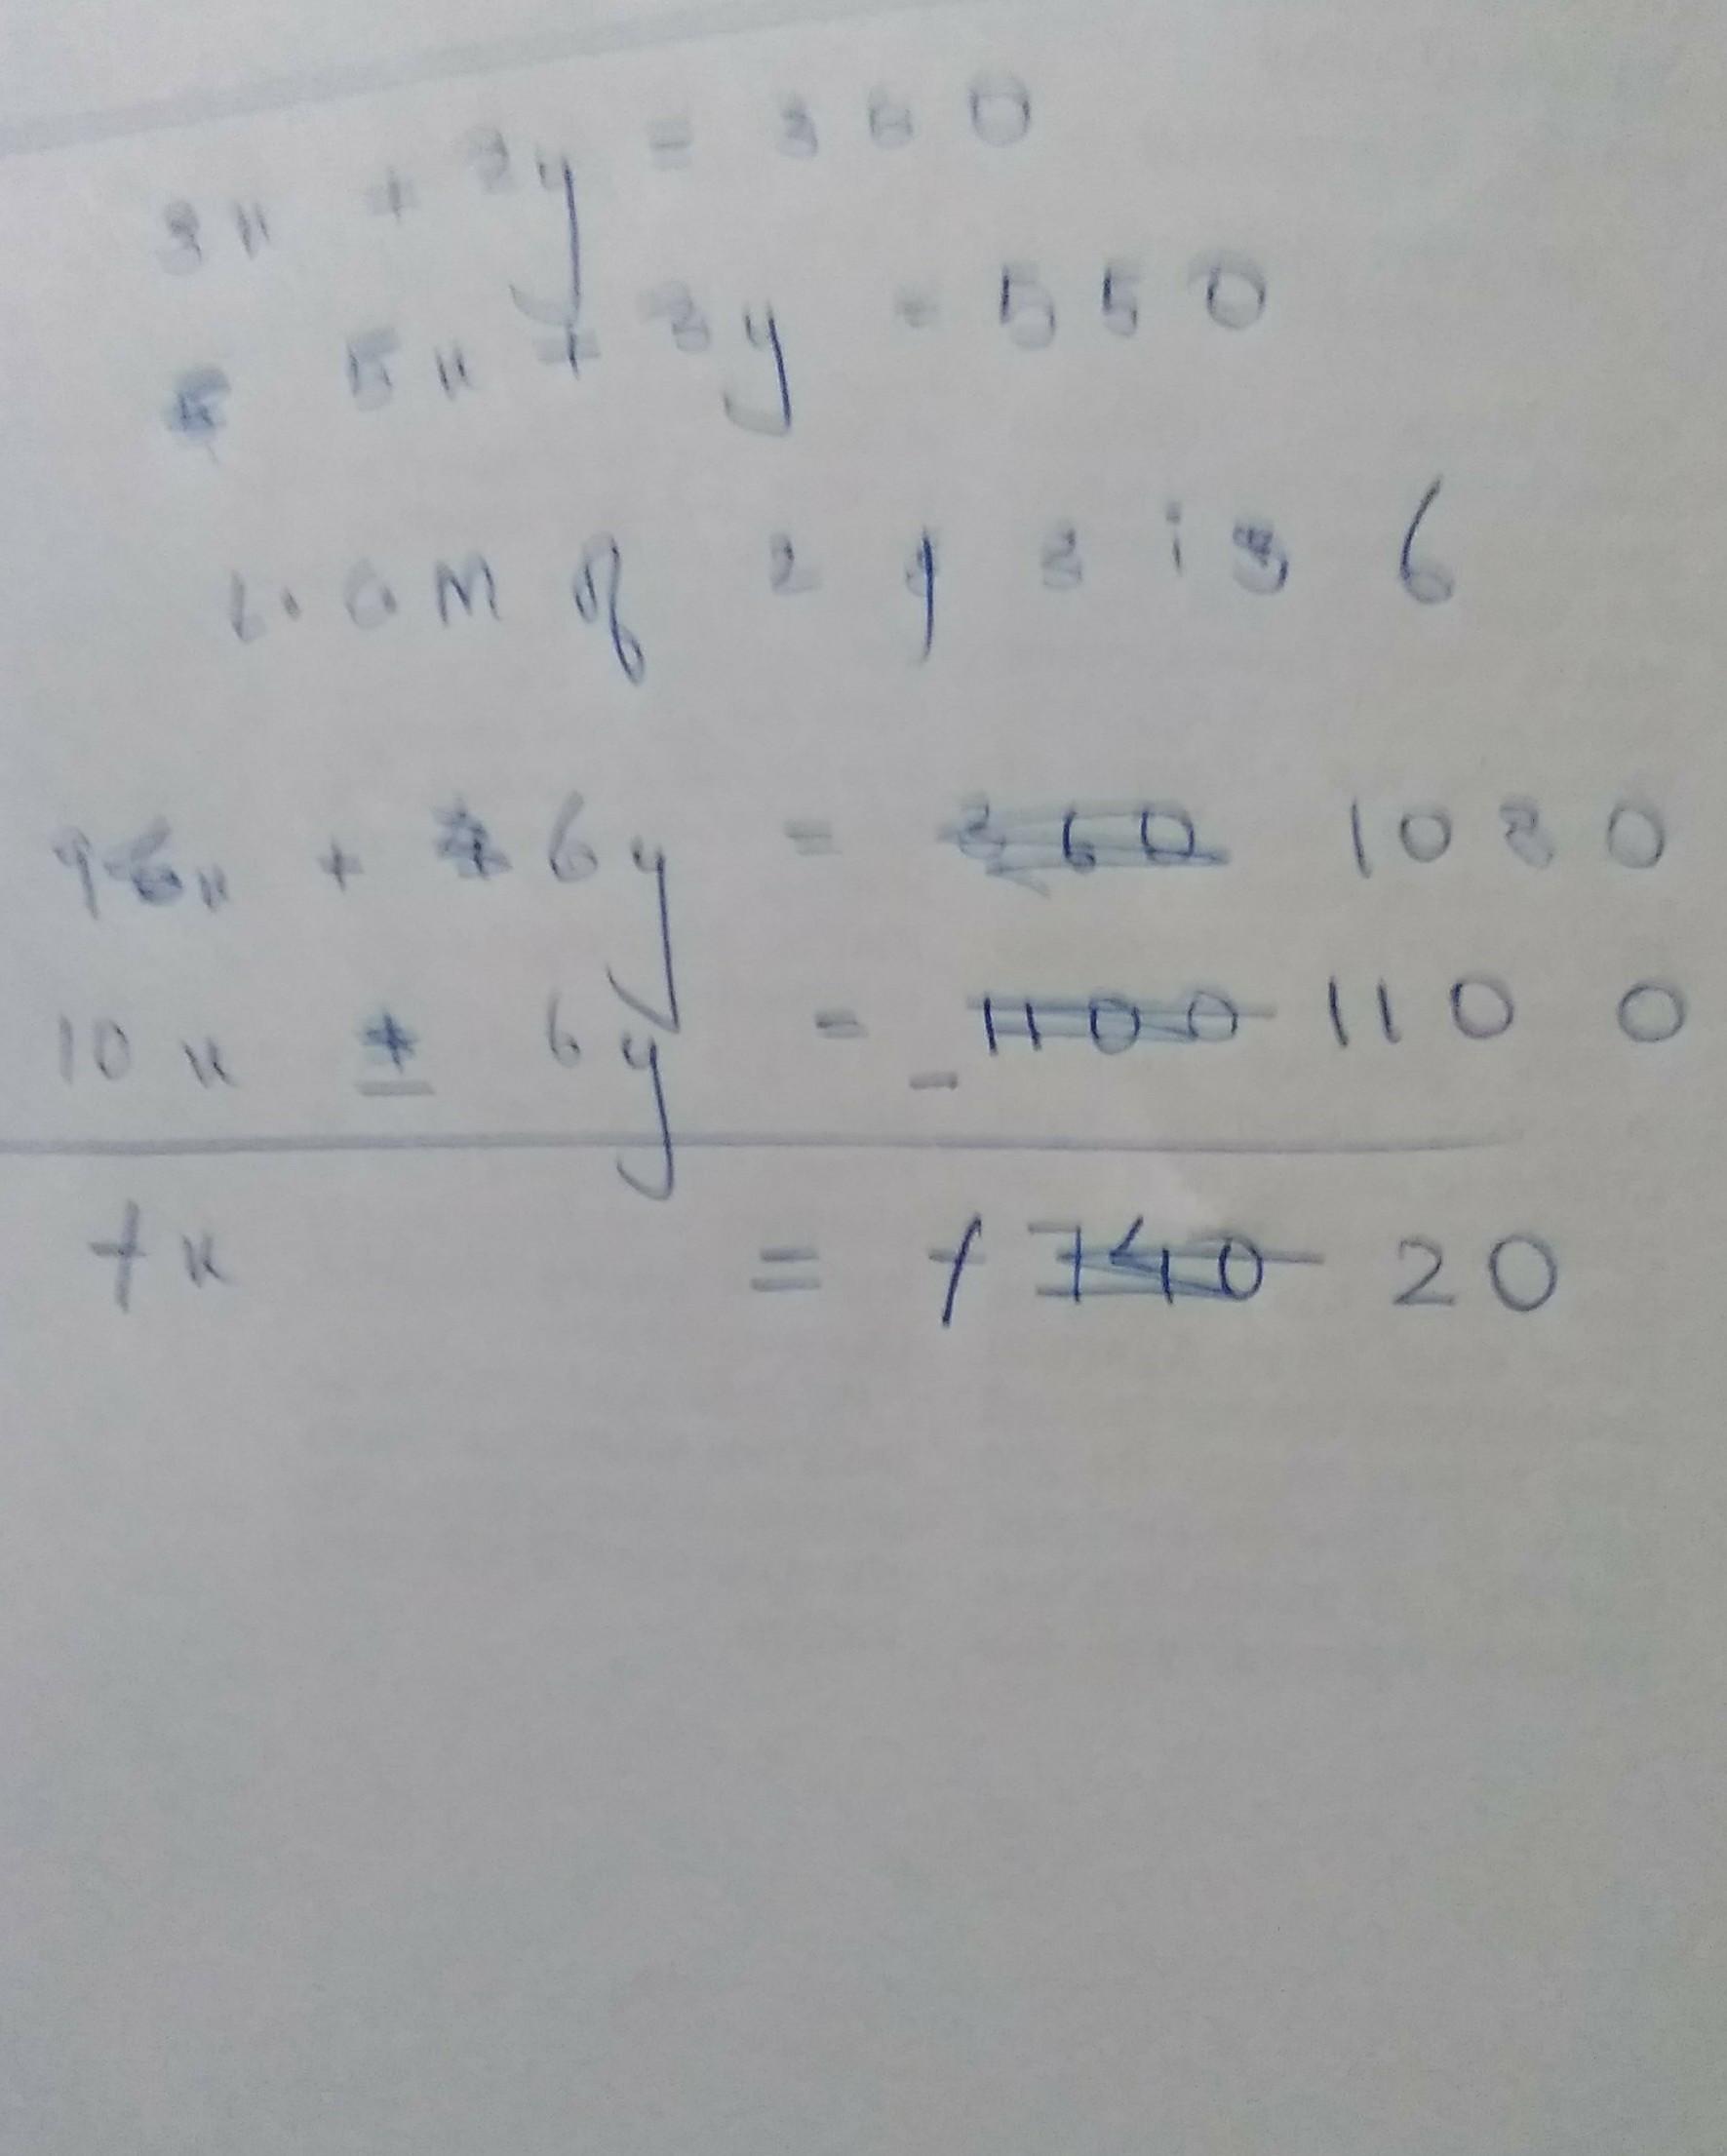 3x + 2y = 360
5x + 3y = 550
L.C.M of 2 & 3 is 6
9x + 6y = 1080
10x + 6y = 1100
- -
+x = +20